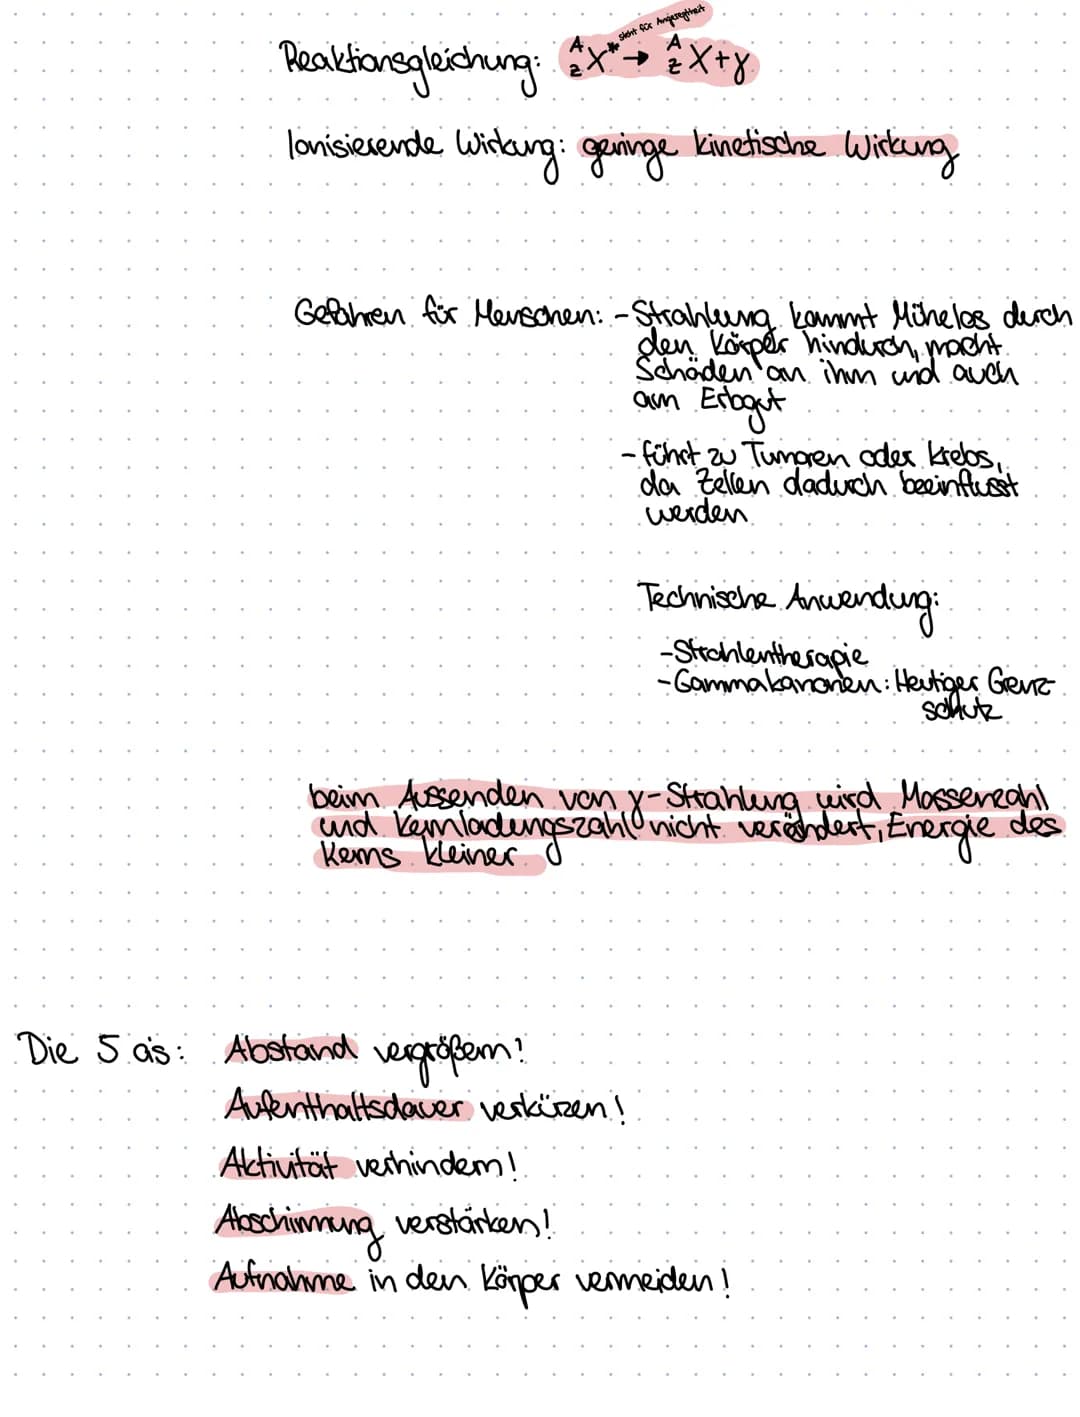 steht für Angeregtheit
Reaktionsgleichung: ᴬ_Z X* → ᴬ_Z X+γ
Ionisierende Wirkung: geringe kinetische Wirkung
Gefahren für Menschen: - Strahlung kommt Mühelos durch
den Körper hindurch, macht
Schäden an ihm und auch
am Erbgut
- führt zu Tumoren oder Krebs,
da Zellen dadurch beeinflusst
werden
Technische Anwendung:
- Strahlentherapie
- Gammakanonen: Heutiger Grenz
schutz
beim Aussenden von γ-Strahlung wird Massenzahl
und Kernladungszahl nicht verändert, Energie des
Kerns kleiner
Die 5 a's: Abstand vergrößern!
Aufenthaltsdauer verkürzen!
Aktivität verhindern!
Abschirmung verstärken!
Aufnahme in den Körper vermeiden!